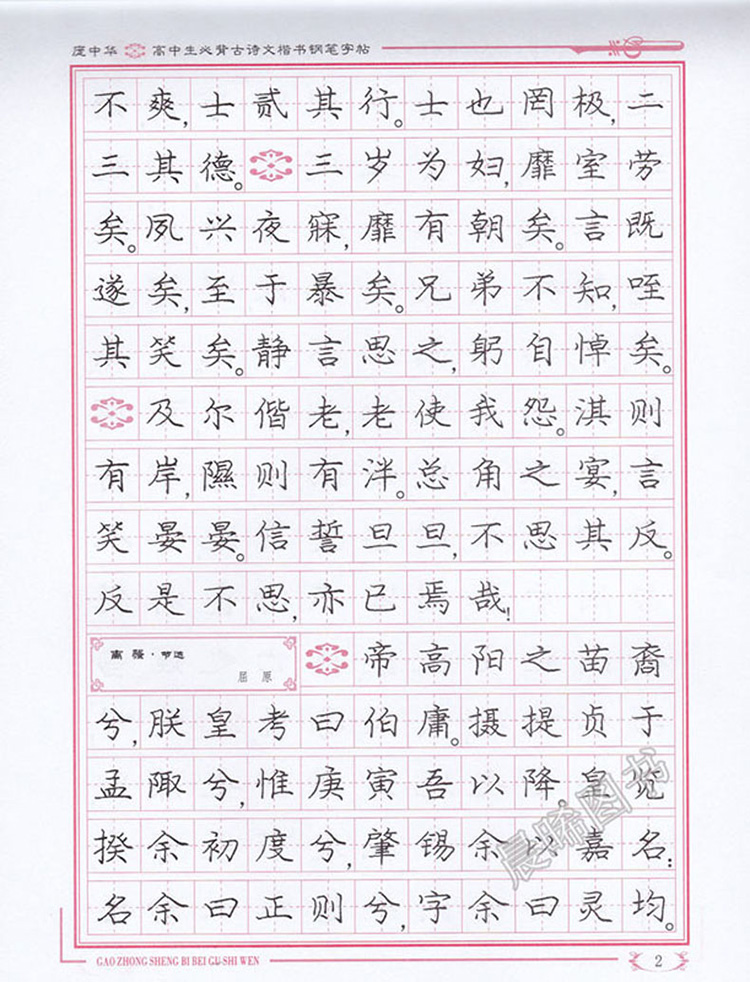 庞中华 高中生必背古诗文楷书钢笔字帖
不爽,士贰其行。士也罔极,二
三其德。 三岁为妇,靡室劳
矣。夙兴夜寐,靡有朝矣。言既
遂矣,至于暴矣。兄弟不知,咥
其笑矣。静言思之,躬自悼矣。
及尔偕老,老使我怨。淇则
有岸,隰则有泮。总角之宴,言
笑晏晏。信誓旦旦,不思其反。
反是不思,亦已焉哉!
离骚·节选
屈原
帝高阳之苗裔
兮,朕皇考曰伯庸。摄提贞于
孟陬兮,惟庚寅吾以降。皇览
揆余初度兮,肇锡余以嘉名:
名余曰正则兮,字余曰灵均。
晨曦图书
GAO ZHONG SHENG BI BEI GU SHI WEN
2